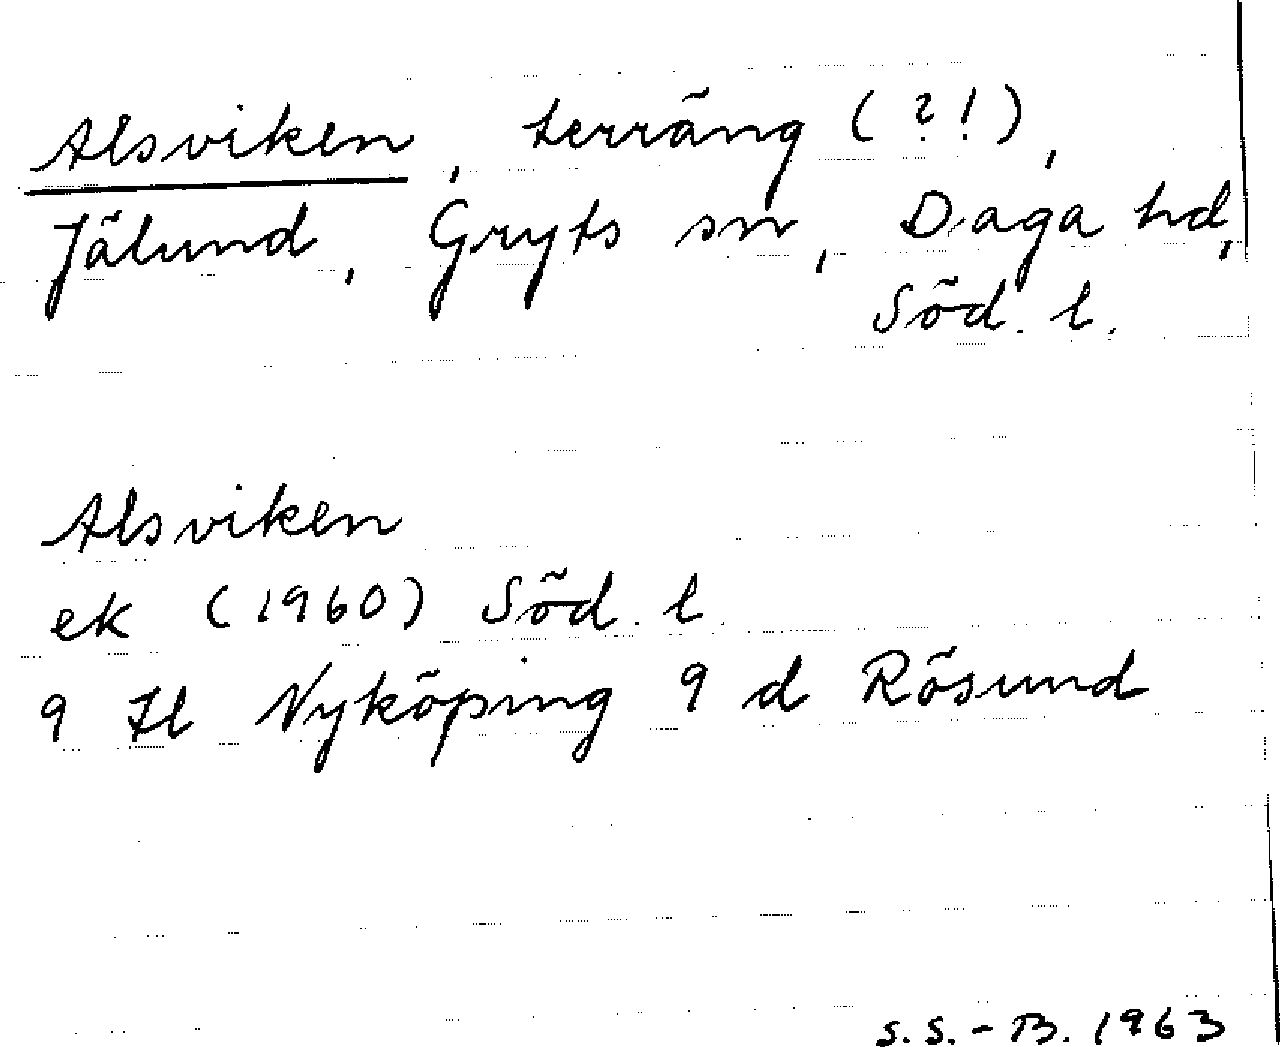 Alsviken, terräng (?!),
Jälund, Gryts sn, Daga hd,
Söd. l.
Alsviken
ek (1960) Söd. l.
9 H Nyköping 9 d Rösund
S.S.-B. 1963